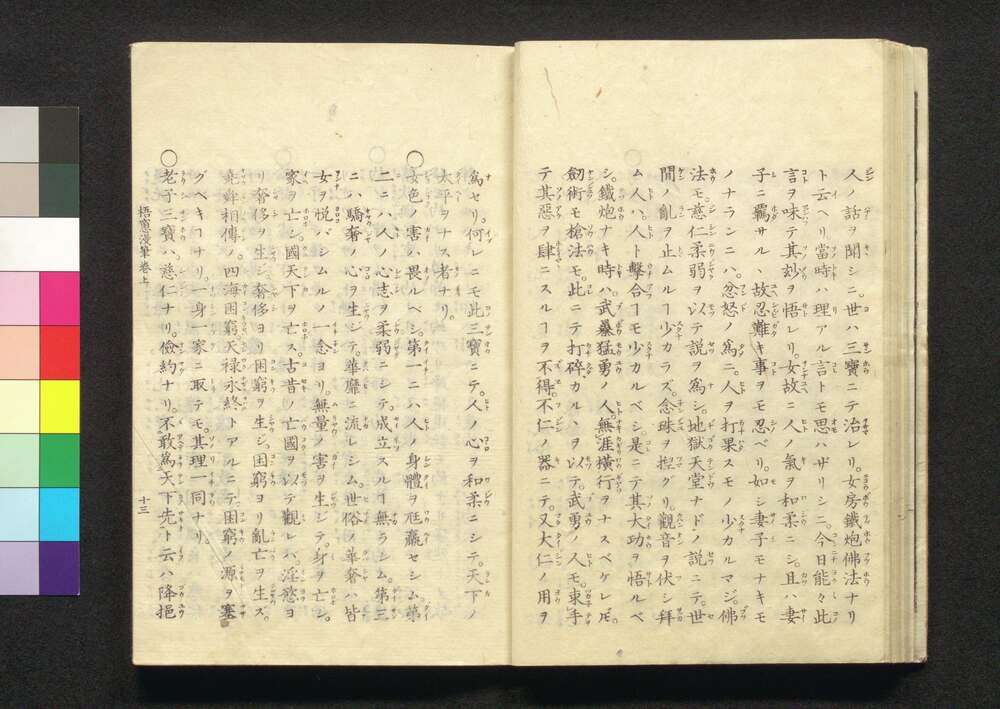 人ノ話ヲ聞シニ。世ハ三寶ニテ治レリ。女房鐵炮佛法ナリ
ト云ヘリ當時ハ理アル言トモ思ハザリシニ。今日能々此
言ヲ味テ其玅ヲ悟レリ。女故ニ人ノ氣ヲ和柔ニシ。且ハ妻
子ニ羈サル丶故忍難キ事ヲモ忍ベリ。如シ妻子モナキモ
ノナランニハ。忿怒ノ爲ニ。人ヲ打果スモノ少カルマジ。佛
法モ。慈仁柔弱ヲ以テ說ヲ爲シ。地獄天堂ナドノ説ニテ。世
間ノ亂ヲ止ムルヿ少カラズ。念珠ヲ揑グリ。觀音ヲ伏シ拜
ム人ハ。人ト擊合ヿモ少カルベシ。是ニテ其大功ヲ悟ルベ
シ。鐵炮ナキ時ハ。武暴猛勇ノ人。無涯橫行ヲナスベケレ𪜈。
劒術モ槍法モ。此ニテ打碎カル丶ヲ以テ。武勇ノ人モ。束手
テ其惡ヲ肆ニスルヿヲ不得。不仁ノ器ニテ。又大仁ノ用ヲ
爲セリ。何レニモ此三寶ニテ。人ノ心ヲ和柔ニシテ。天下ノ
太平ヲナス者ナリ。
○女色ノ害ハ畏ルベシ。第一ニハ人ノ身體ヲ尫羸セシム。第
二ニハ人ノ心志ヲ柔弱ニシテ。成立スルヿ無ラシム。第三
ニハ驕奢ノ心ヲ生ジテ。華靡ニ流レシム。世俗ノ華奢ハ皆
女ヲ悦バシムルノ一念ヨリ。無量ノ害ヲ生ジテ。身ヲ亡シ。
家ヲ亡シ。國天下ヲ亡ス。古昔ノ亡國ヲ以テ觀レバ。淫慾ヨ
リ奢侈ヲ生ジ。奢侈ヨリ困窮ヲ生ジ。困窮ヨリ亂亡ヲ生ズ。
堯舜相傳ノ四海困窮天祿永終トアルニテ。困窮ノ源ヲ塞
グベキヿナリ。一身一家ニ取テモ。其理一同ナリ。
○老子三寶ハ。慈仁ナリ。儉約ナリ。不敢爲天下先ト云ハ降挹
梧窻漫筆卷上 十三